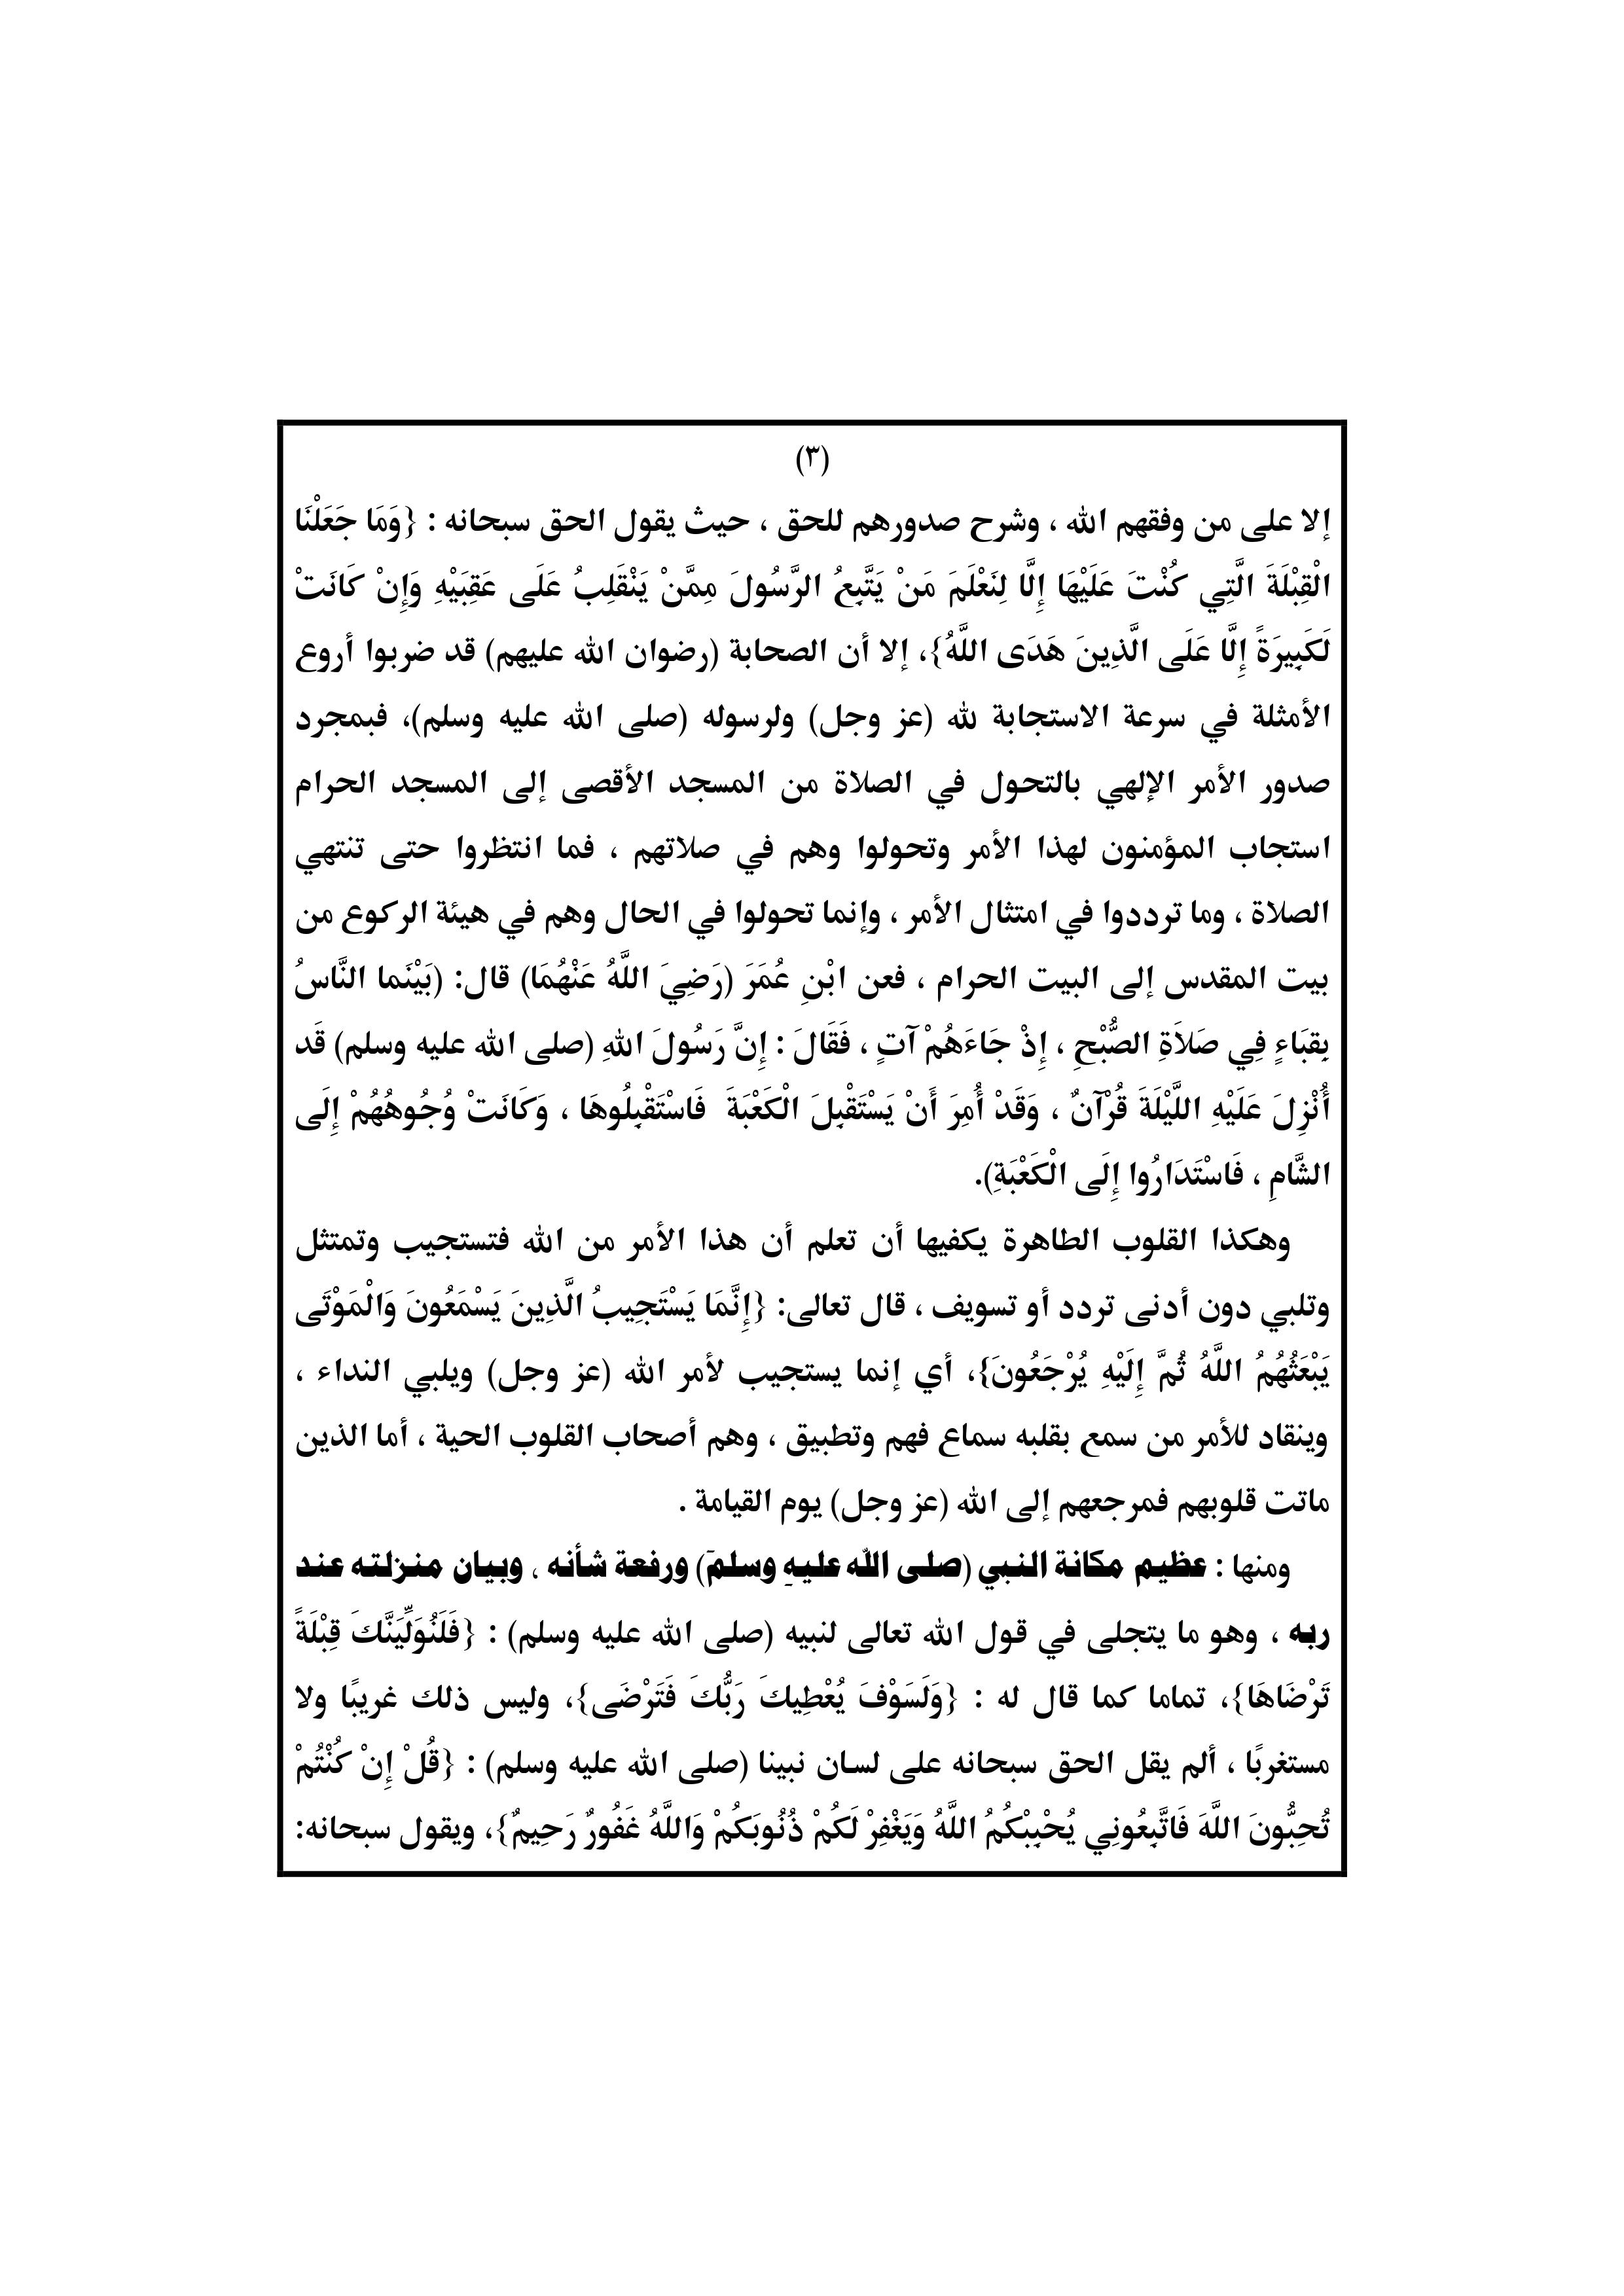 (٣)
إلا على من وفقهم الله ، وشرح صدورهم للحق ، حيث يقول الحق سبحانه : {وَمَا جَعَلْنَا
الْقِبْلَةَ الَّتِي كُنْتَ عَلَيْهَا إِلَّا لِنَعْلَمَ مَنْ يَتَّبِعُ الرَّسُولَ مِمَّنْ يَنْقَلِبُ عَلَى عَقِبَيْهِ وَإِنْ كَانَتْ
لَكَبِيرَةً إِلَّا عَلَى الَّذِينَ هَدَى اللَّهُ}، إلا أن الصحابة (رضوان الله عليهم) قد ضربوا أروع
الأمثلة في سرعة الاستجابة لله (عز وجل) ولرسوله (صلى الله عليه وسلم)، فبمجرد
صدور الأمر الإلهي بالتحول في الصلاة من المسجد الأقصى إلى المسجد الحرام
استجاب المؤمنون لهذا الأمر وتحولوا وهم في صلاتهم ، فما انتظروا حتى تنتهي
الصلاة ، وما ترددوا في امتثال الأمر ، وإنما تحولوا في الحال وهم في هيئة الركوع من
بيت المقدس إلى البيت الحرام ، فعن ابْنِ عُمَرَ (رَضِيَ اللَّهُ عَنْهُمَا) قال: (بَيْنَما النَّاسُ
بِقبَاءٍ فِي صَلاَةِ الصُّبْحِ ، إِذْ جَاءَهُمْ آتٍ ، فَقَالَ : إِنَّ رَسُولَ اللهِ (صلى الله عليه وسلم) قَد
أُنْزِلَ عَلَيْهِ اللَّيْلَةَ قُرْآنٌ ، وَقَدْ أُمِرَ أَنْ يَسْتَقْبِلَ الْكَعْبَةَ فَاسْتَقْبِلُوهَا ، وَكَانَتْ وُجُوهُهُمْ إِلَى
الشَّامِ ، فَاسْتَدَارُوا إِلَى الْكَعْبَةِ).
وهكذا القلوب الطاهرة يكفيها أن تعلم أن هذا الأمر من الله فتستجيب وتمتثل
وتلبي دون أدنى تردد أو تسويف ، قال تعالى: {إِنَّمَا يَسْتَجِيبُ الَّذِينَ يَسْمَعُونَ وَالْمَوْتَى
يَبْعَثُهُمُ اللَّهُ ثُمَّ إِلَيْهِ يُرْجَعُونَ}، أي إنما يستجيب لأمر الله (عز وجل) ويلبي النداء ،
وينقاد للأمر من سمع بقلبه سماع فهم وتطبيق ، وهم أصحاب القلوب الحية ، أما الذين
ماتت قلوبهم فمرجعهم إلى الله (عز وجل) يوم القيامة .
ومنها : عظيم مكانة النبي (صلى الله عليه وسلم) ورفعة شأنه ، وبيان منزلته عند
ربه ، وهو ما يتجلى في قول الله تعالى لنبيه (صلى الله عليه وسلم) : {فَلَنُوَلِّيَنَّكَ قِبْلَةً
تَرْضَاهَا}، تماما كما قال له : {وَلَسَوْفَ يُعْطِيكَ رَبُّكَ فَتَرْضَى}، وليس ذلك غريبًا ولا
مستغربًا ، ألم يقل الحق سبحانه على لسان نبينا (صلى الله عليه وسلم) : {قُلْ إِنْ كُنْتُمْ
تُحِبُّونَ اللَّهَ فَاتَّبِعُونِي يُحْبِبْكُمُ اللَّهُ وَيَغْفِرْ لَكُمْ ذُنُوبَكُمْ وَاللَّهُ غَفُورٌ رَحِيمٌ}، ويقول سبحانه: